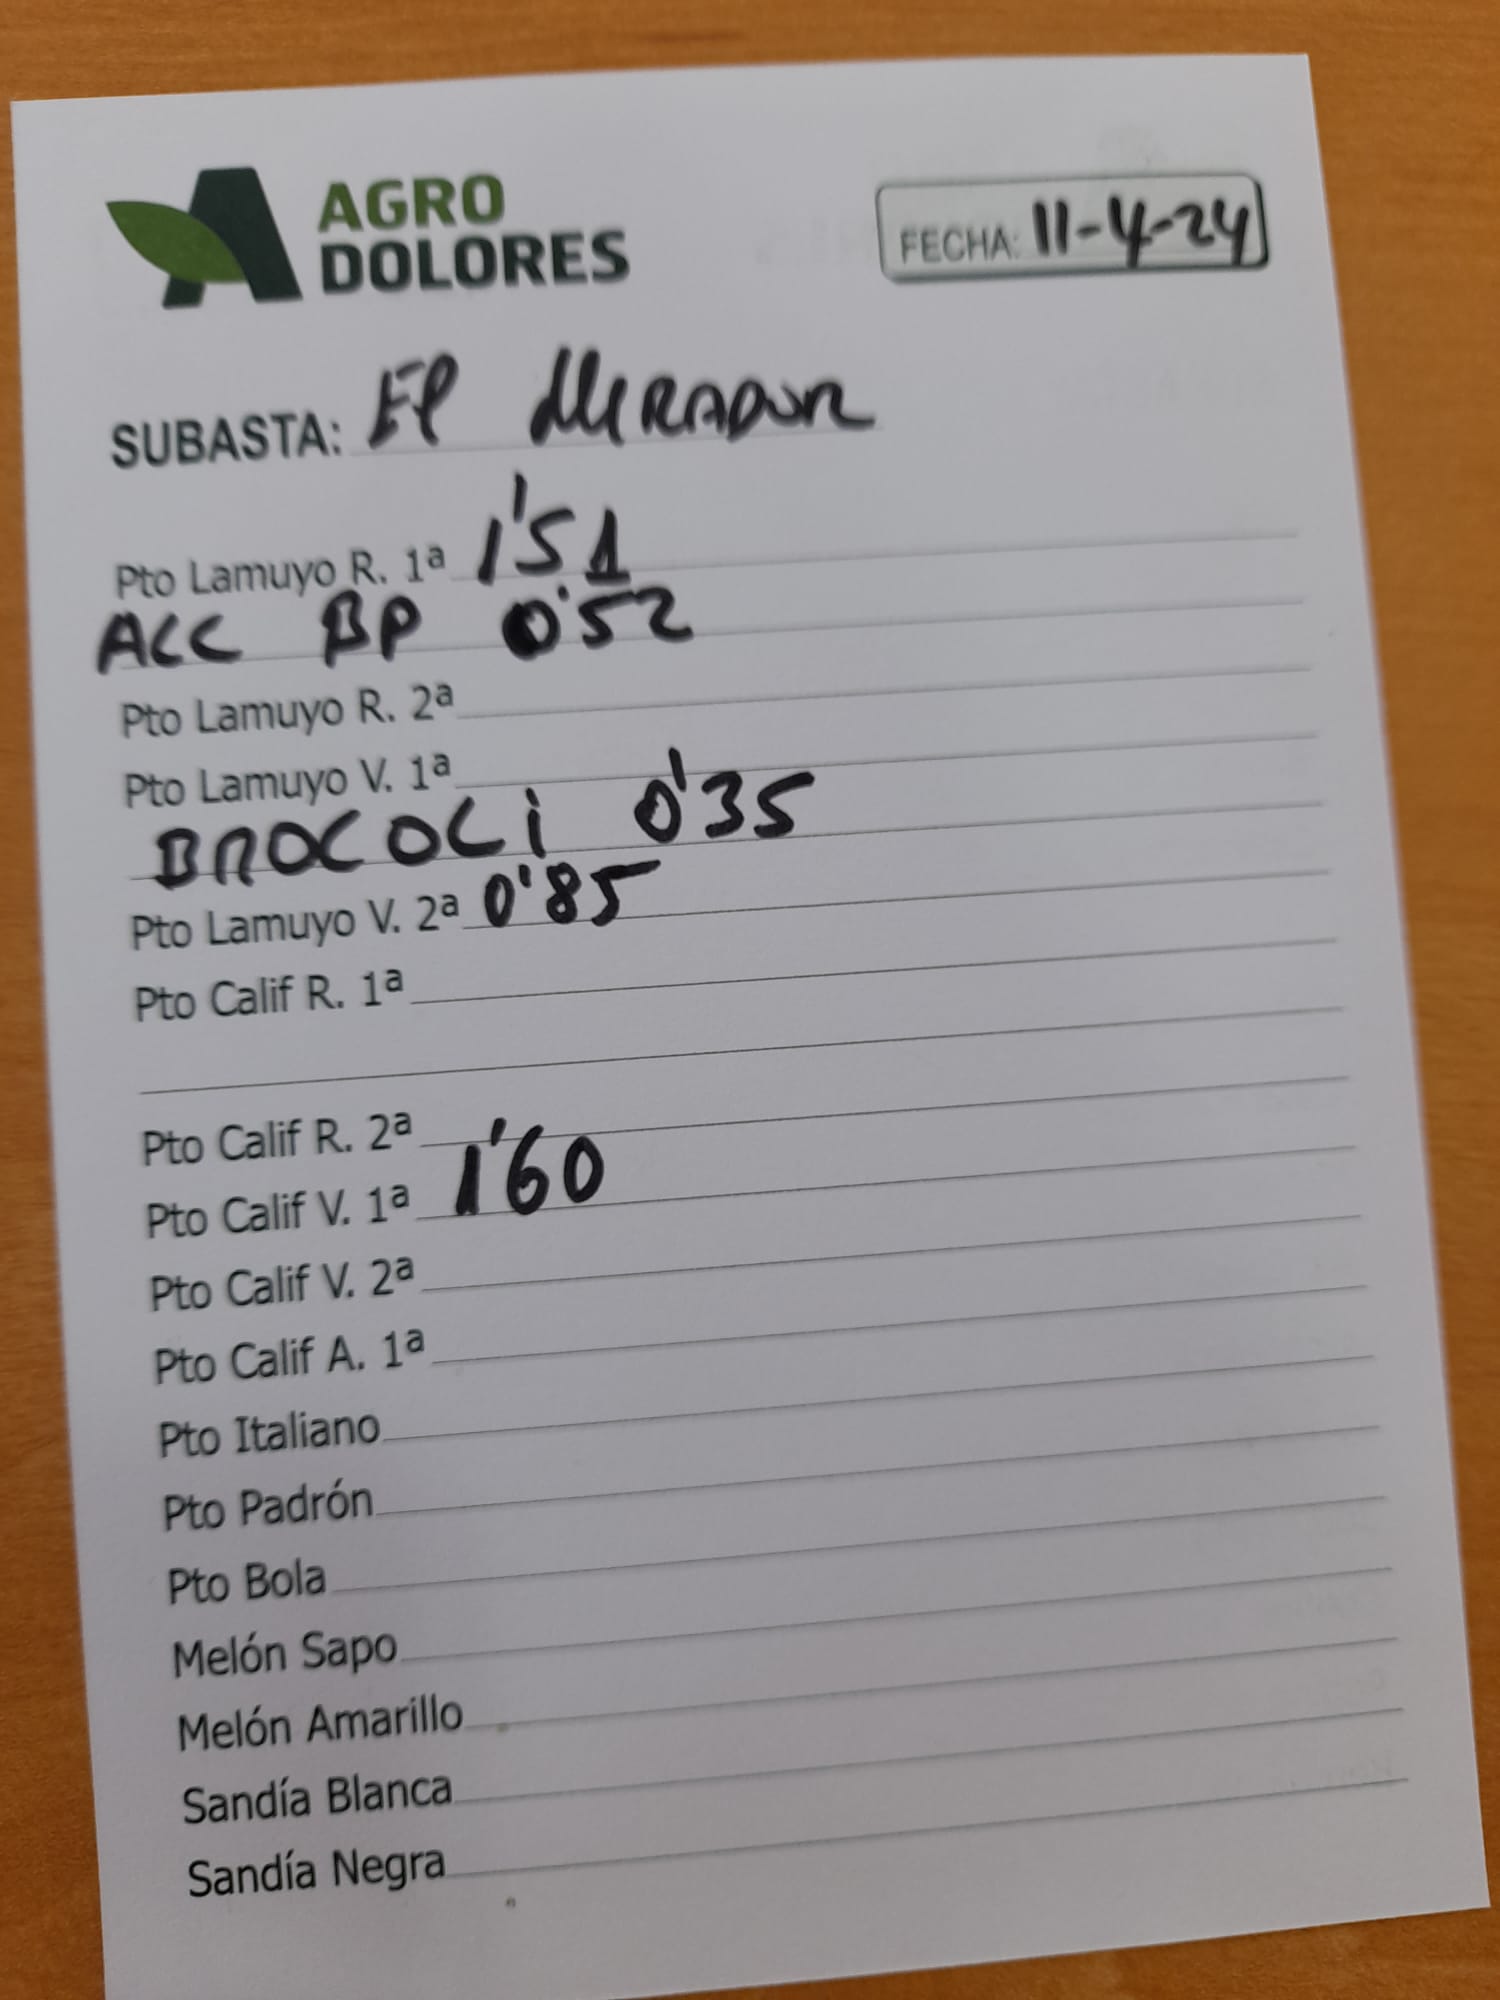 AGRO
DOLORES
FECHA: 11-4-24
SUBASTA: El MIRADOR
Pto Lamuyo R. 1ª 1'51
ACC BP 0'52
Pto Lamuyo R. 2ª
Pto Lamuyo V. 1ª
BROCOLI 0'35
Pto Lamuyo V. 2ª 0'85
Pto Calif R. 1ª
Pto Calif R. 2ª
Pto Calif V. 1ª 1'60
Pto Calif V. 2ª
Pto Calif A. 1ª
Pto Italiano
Pto Padrón
Pto Bola
Melón Sapo
Melón Amarillo
Sandía Blanca
Sandía Negra